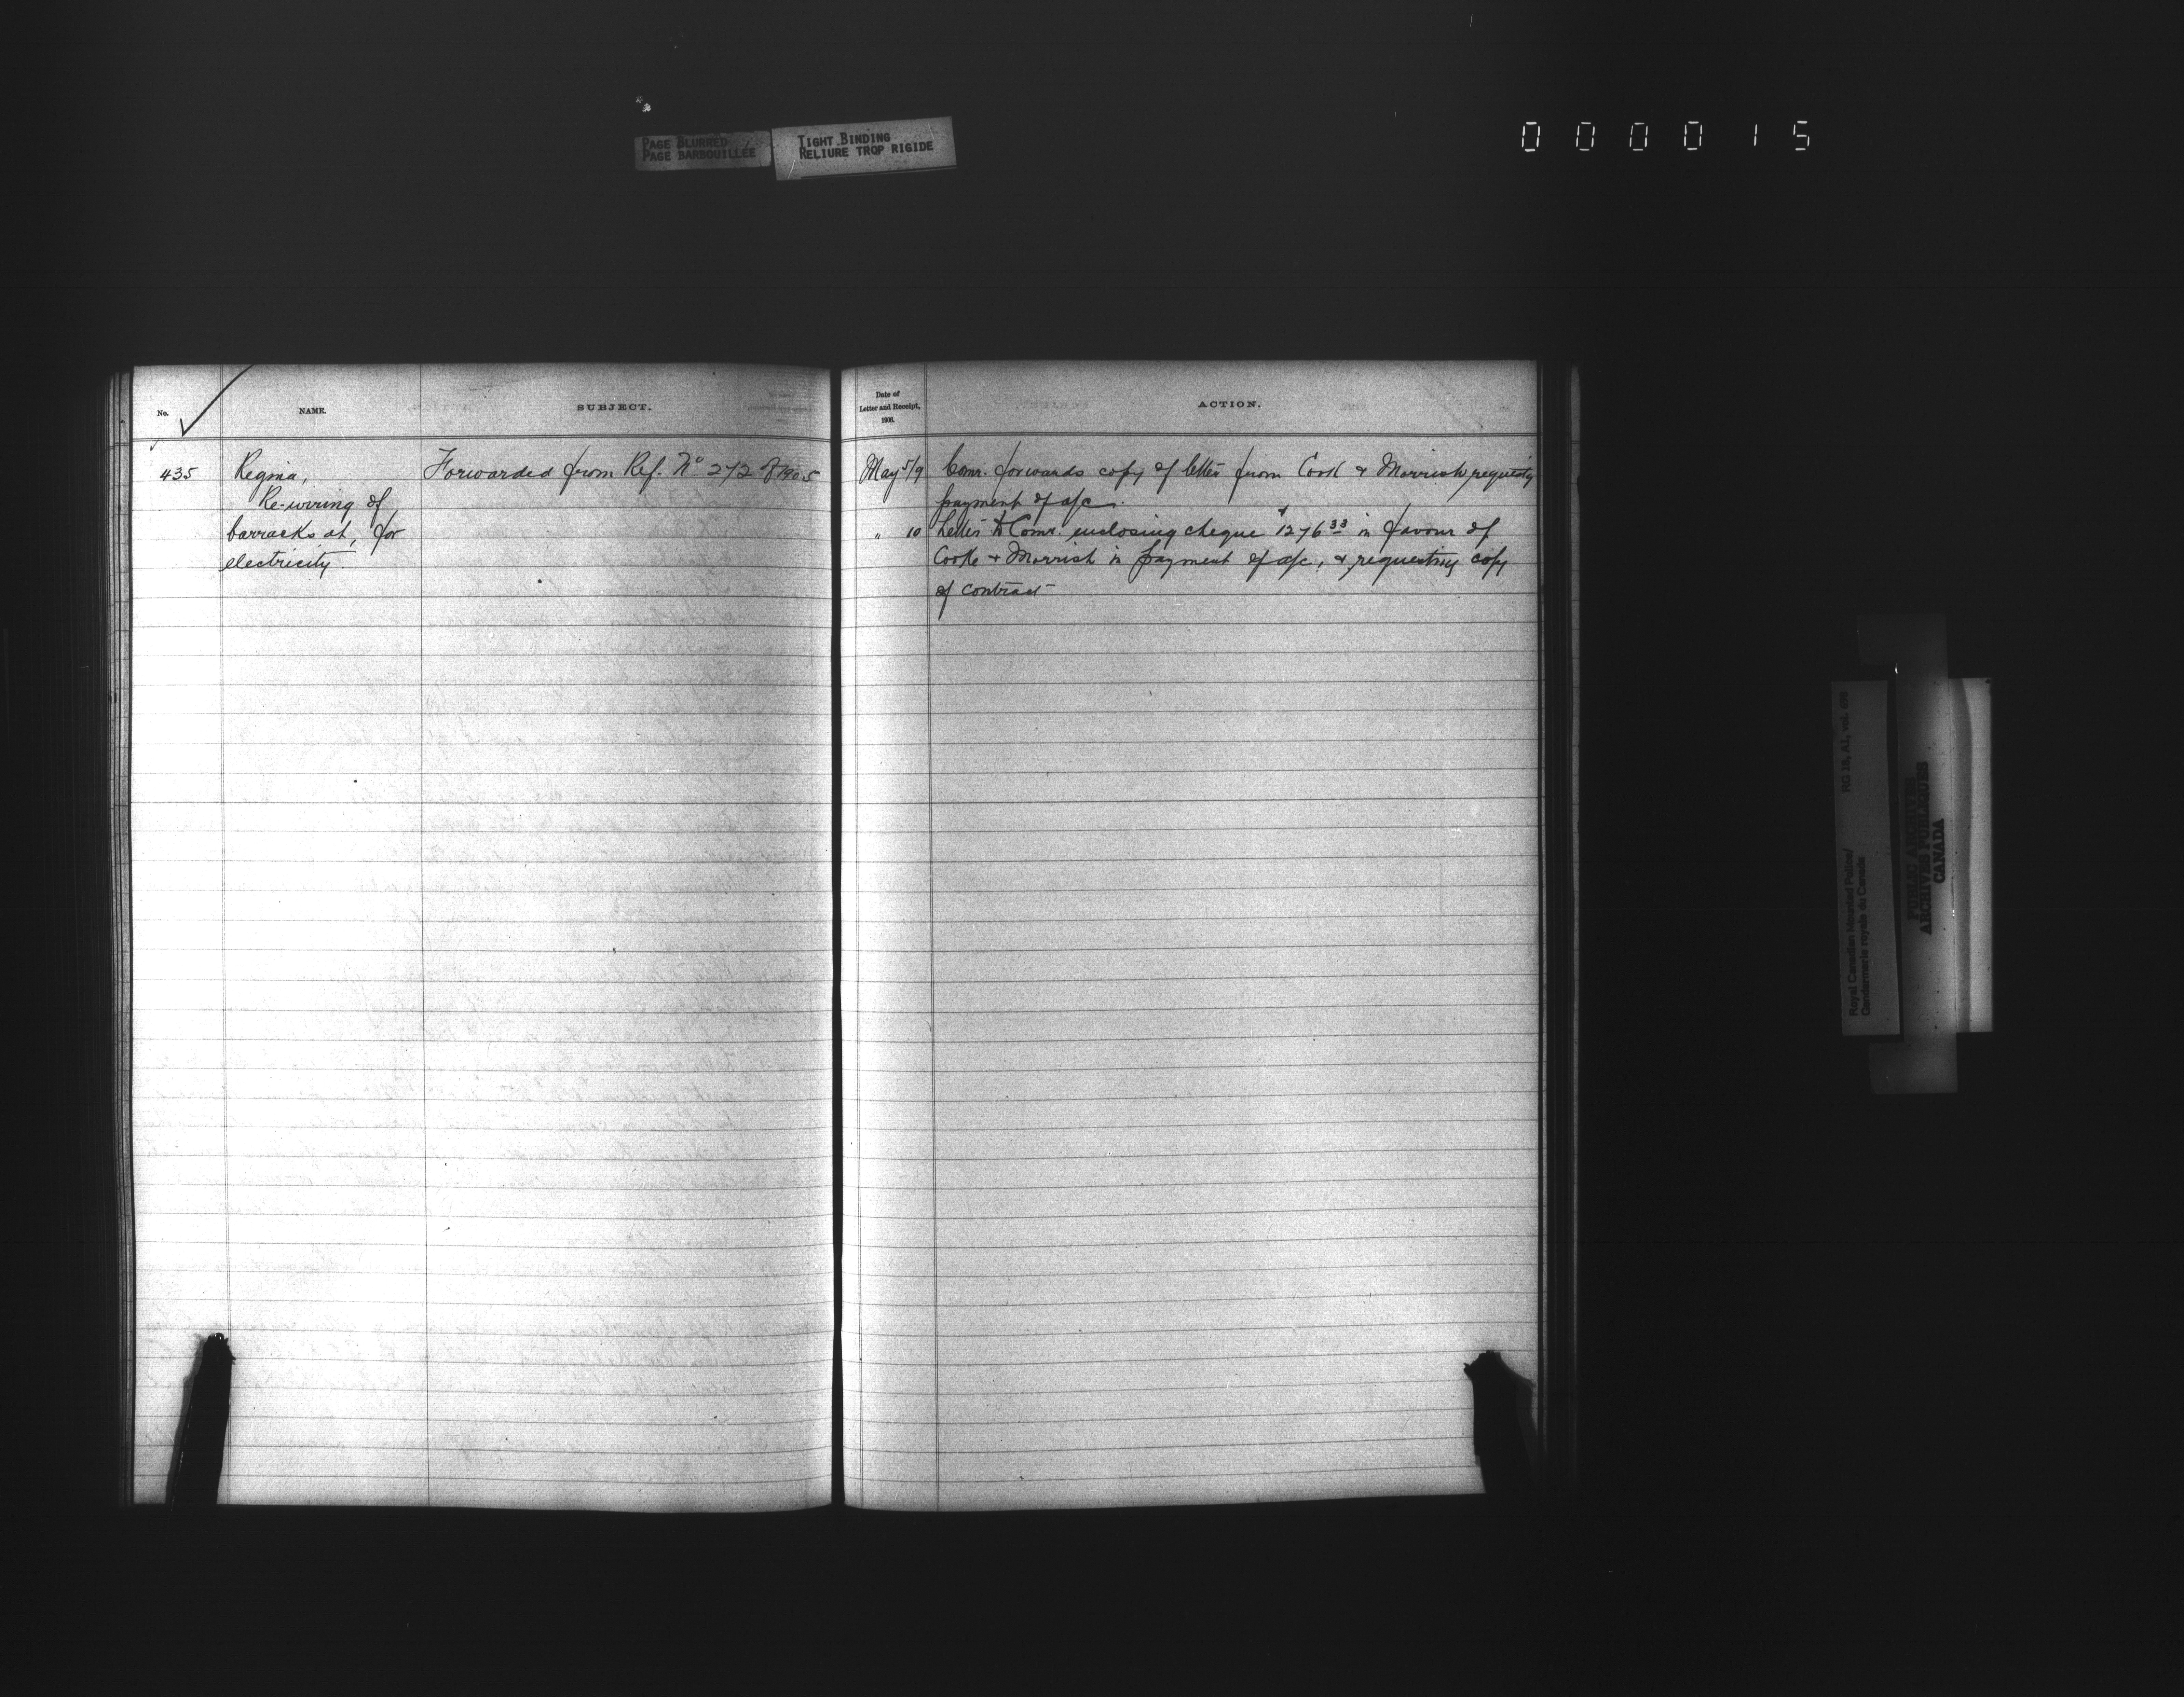 PAGE BLURRED
PAGE BARBOUILLÉE
TIGHT BINDING
RELIURE TROP RIGIDE
000015
No.
NAME.
SUBJECT.
435
Regina,
Re-wiring of
barracks at, for
electricity.
Forwarded from Ref. No 272 of 1905
Date of
Letter and Receipt,
1906.
ACTION.
May 5/9 Comr. forwards copy of letter from Cook & Morrish requestg
payment of a/c.
" 10 Letter to Comr. enclosing cheque $1276 33 in favour of
Cooke & Morrish in payment of a/c, & requesting copy
of contract
Royal Canadian Mounted Police/
Gendarmerie royale du Canada
RG 18, A1, vol.
PUBLIC ARCHIVES
ARCHIVES PUBLIQUES
CANADA